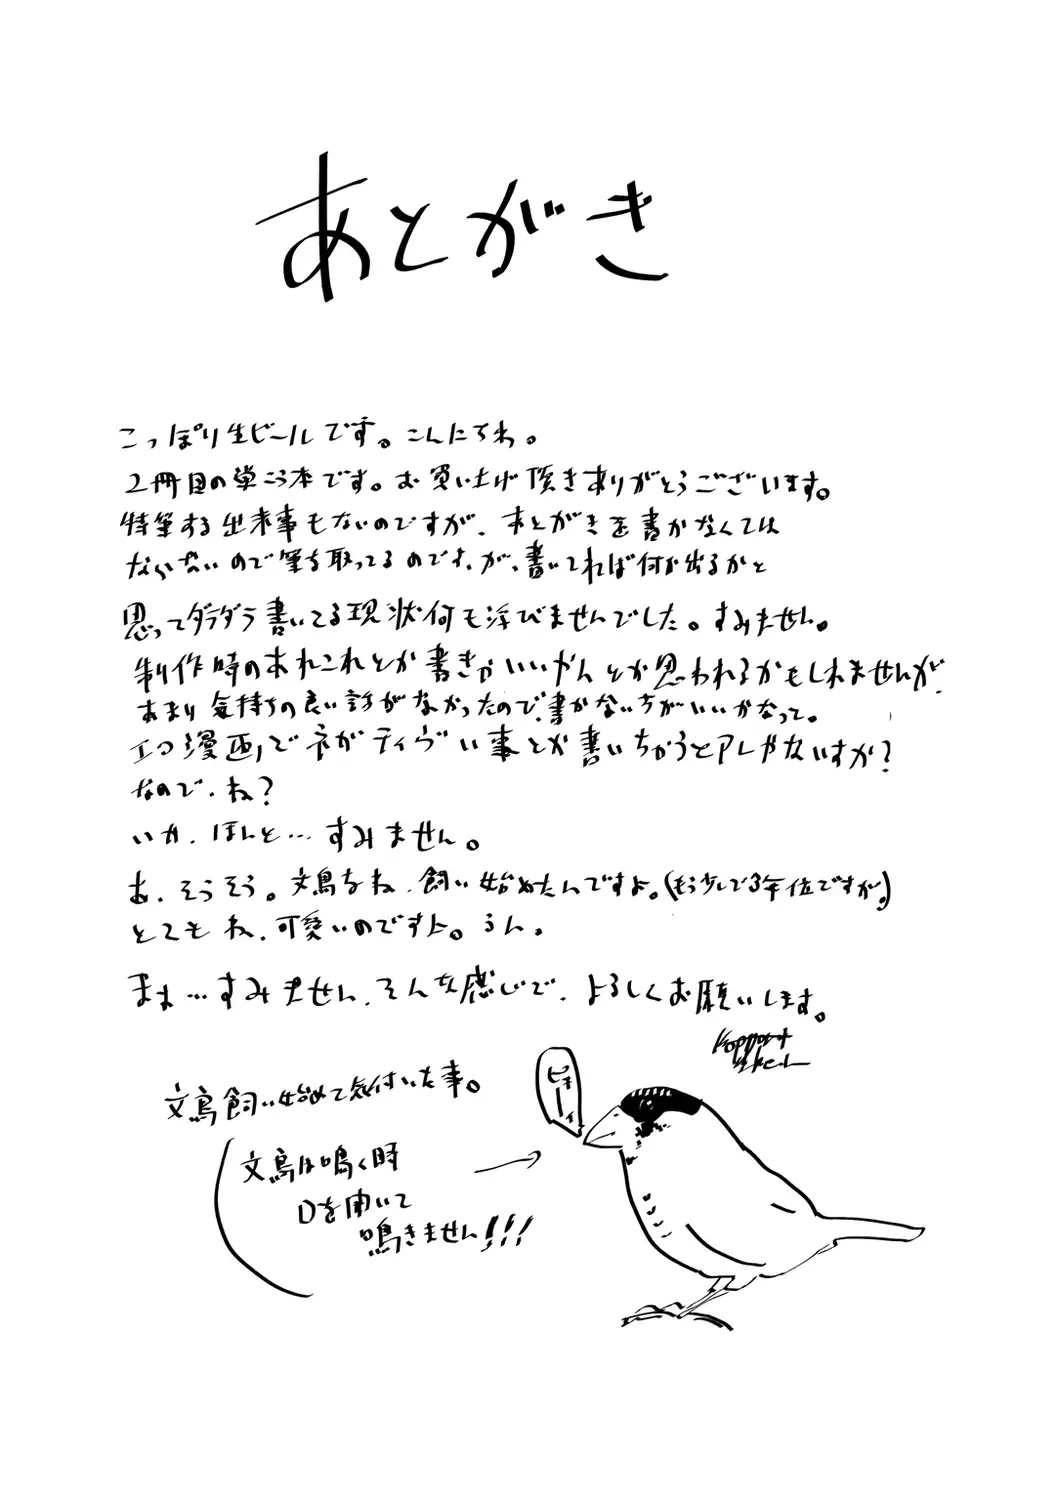 あとがき
こっぽり生ビールです。こんにちわ。
2冊目の単こう本です。お買い上げ頂きありがとうございます。
特筆する出来事もないのですが、あとがきを書かなくては
ならないので筆を取ってるのです、が、書いてれば何か出るかと
思ってダラダラ書いてる現状何も浮びませんでした。すみません。
制作時のあれこれとか書きゃいいやんとか思われるかもしれませんが、
あまり気持ちの良い話がなかったので、書かない方がいいかなって。
エロ漫画でネガティヴい事とか書いちゃうとアレじゃないすか?
なので、ね?
いや、ほんと…すみません。
あ、そうそう。文鳥をね、飼い始めたんですよ。(もう少しで3年位ですが。)
とてもね、可愛いのですよ。うん。
まぁ…すみません、そんな感じで、よろしくお願いします。
文鳥飼い始めて気付いた事。
ピョーィ
文鳥は鳴く時
口を開いて
鳴きません!!!